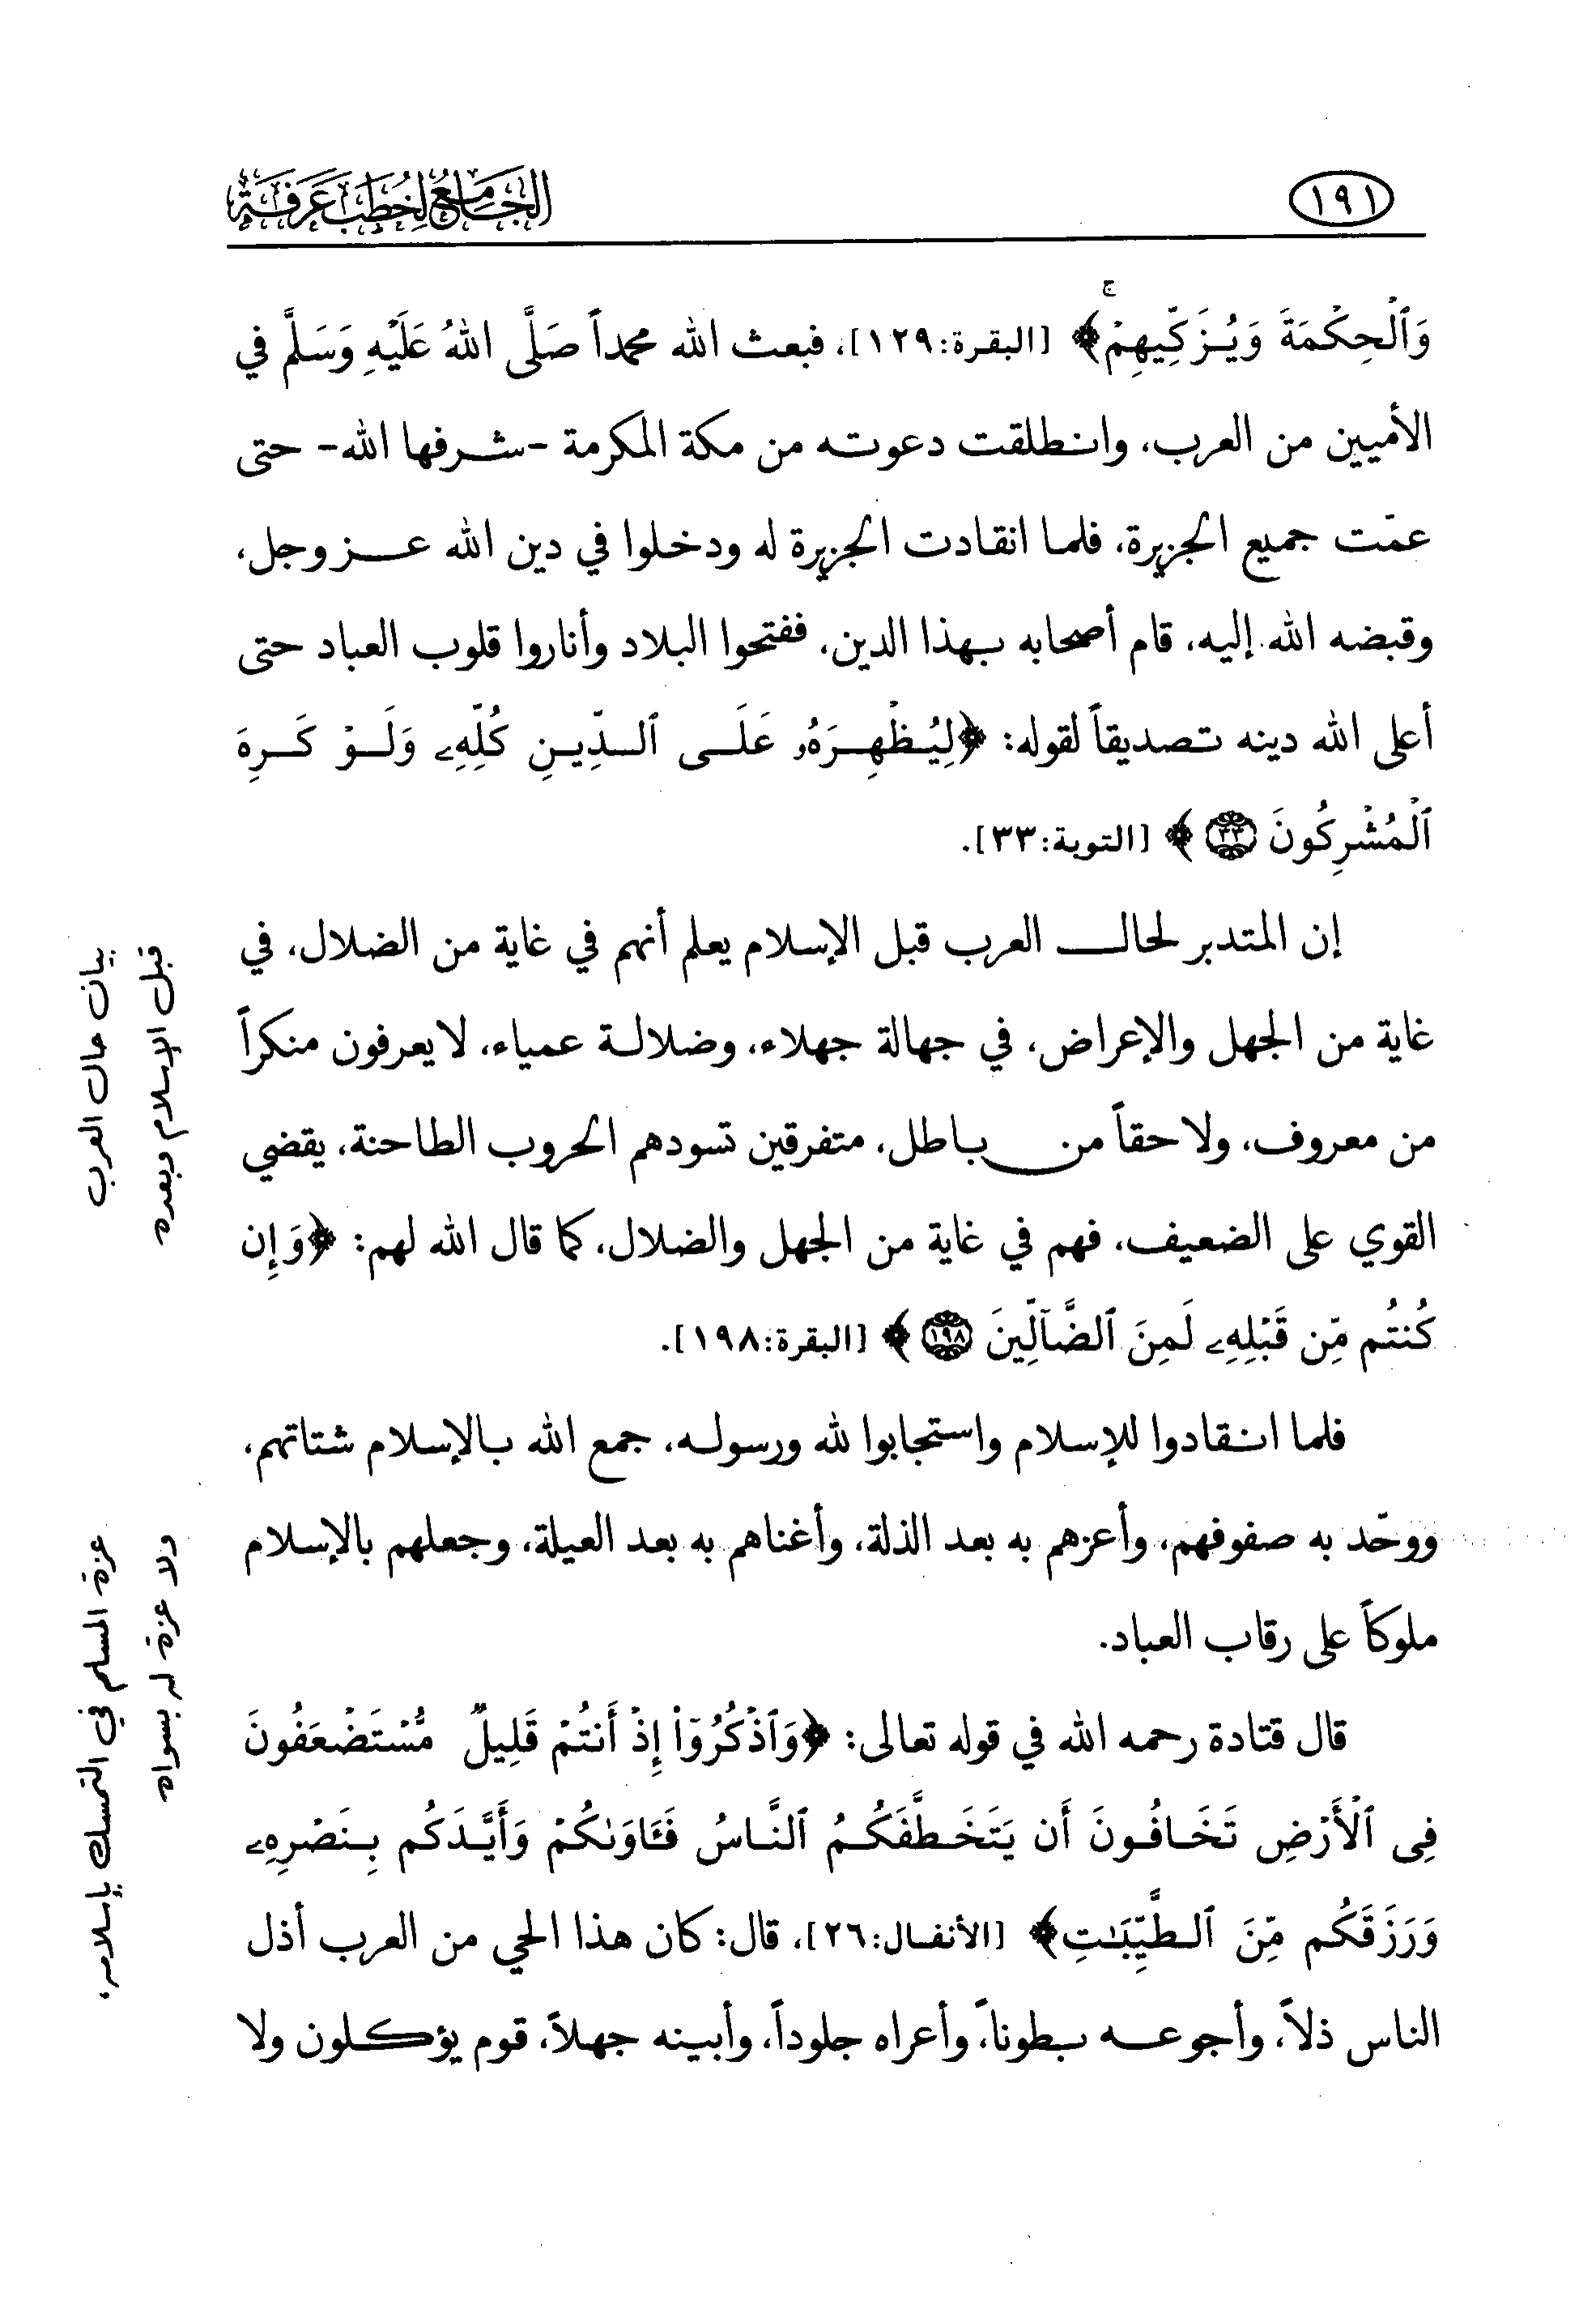 ١٩١
الجامع لخطب عرفة
وَٱلْحِكْمَةَ وَيُزَكِّيهِمْۚ﴾ [البقرة:١٢٩]، فبعث الله محمداً صَلَّى اللهُ عَلَيْهِ وَسَلَّمَ في
الأميين من العرب، وانطلقت دعوته من مكة المكرمة -شرفها الله- حتى
عمّت جميع الجزيرة، فلما انقادت الجزيرة له ودخلوا في دين الله عز وجل،
وقبضه الله إليه، قام أصحابه بهذا الدين، ففتحوا البلاد وأناروا قلوب العباد حتى
أعلى الله دينه تصديقاً لقوله: ﴿لِيُظْهِرَهُۥ عَلَى ٱلدِّينِ كُلِّهِۦ وَلَوْ كَرِهَ
ٱلْمُشْرِكُونَ ٣٣﴾ [التوبة:٣٣].
إن المتدبر لحال العرب قبل الإسلام يعلم أنهم في غاية من الضلال، في
غاية من الجهل والإعراض، في جهالة جهلاء، وضلالة عمياء، لا يعرفون منكراً
من معروف، ولا حقاً من باطل، متفرقين تسودهم الحروب الطاحنة، يقضي
القوي على الضعيف، فهم في غاية من الجهل والضلال، كما قال الله لهم: ﴿وَإِن
كُنتُم مِّن قَبْلِهِۦ لَمِنَ ٱلضَّآلِّينَ ١٩٨﴾ [البقرة:١٩٨].
فلما انقادوا للإسلام واستجابوا لله ورسوله، جمع الله بالإسلام شتاتهم،
ووحّد به صفوفهم، وأعزهم به بعد الذلة، وأغناهم به بعد العيلة، وجعلهم بالإسلام
ملوكاً على رقاب العباد.
قال قتادة رحمه الله في قوله تعالى: ﴿وَٱذْكُرُوٓا۟ إِذْ أَنتُمْ قَلِيلٌ مُّسْتَضْعَفُونَ
فِى ٱلْأَرْضِ تَخَافُونَ أَن يَتَخَطَّفَكُمُ ٱلنَّاسُ فَـَٔاوَىٰكُمْ وَأَيَّدَكُم بِنَصْرِهِۦ
وَرَزَقَكُم مِّنَ ٱلطَّيِّبَـٰتِ﴾ [الأنفال:٢٦]، قال: كان هذا الحي من العرب أذل
الناس ذلاً، وأجوعه بطوناً، وأعراه جلوداً، وأبينه جهلاً، قوم يؤكلون ولا
بيان حال العرب
قبل الإسلام وبعده
عزة المسلم في التمسك بإسلامه،
ولا عزة له بسواه